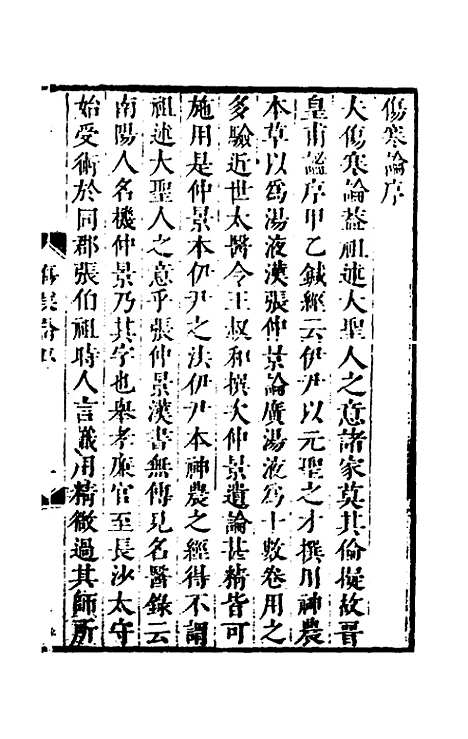 傷寒論序
夫傷寒論葢祖述大聖人之意諸家莫其倫擬故晋
皇甫謐序甲乙鍼經云伊尹以元聖之才撰用神農
本草以爲湯液漢張仲景論廣湯液爲十數卷用之
多驗近世太醫令王叔和撰次仲景遺論甚精皆可
施用是仲景本伊尹之法伊尹本神農之經得不謂
祖述大聖人之意乎張仲景漢書無傳見名醫錄云
南陽人名機仲景乃其字也舉孝廉官至長沙太守
始受術於同郡張伯祖時人言識用精微過其師所
傷寒論序